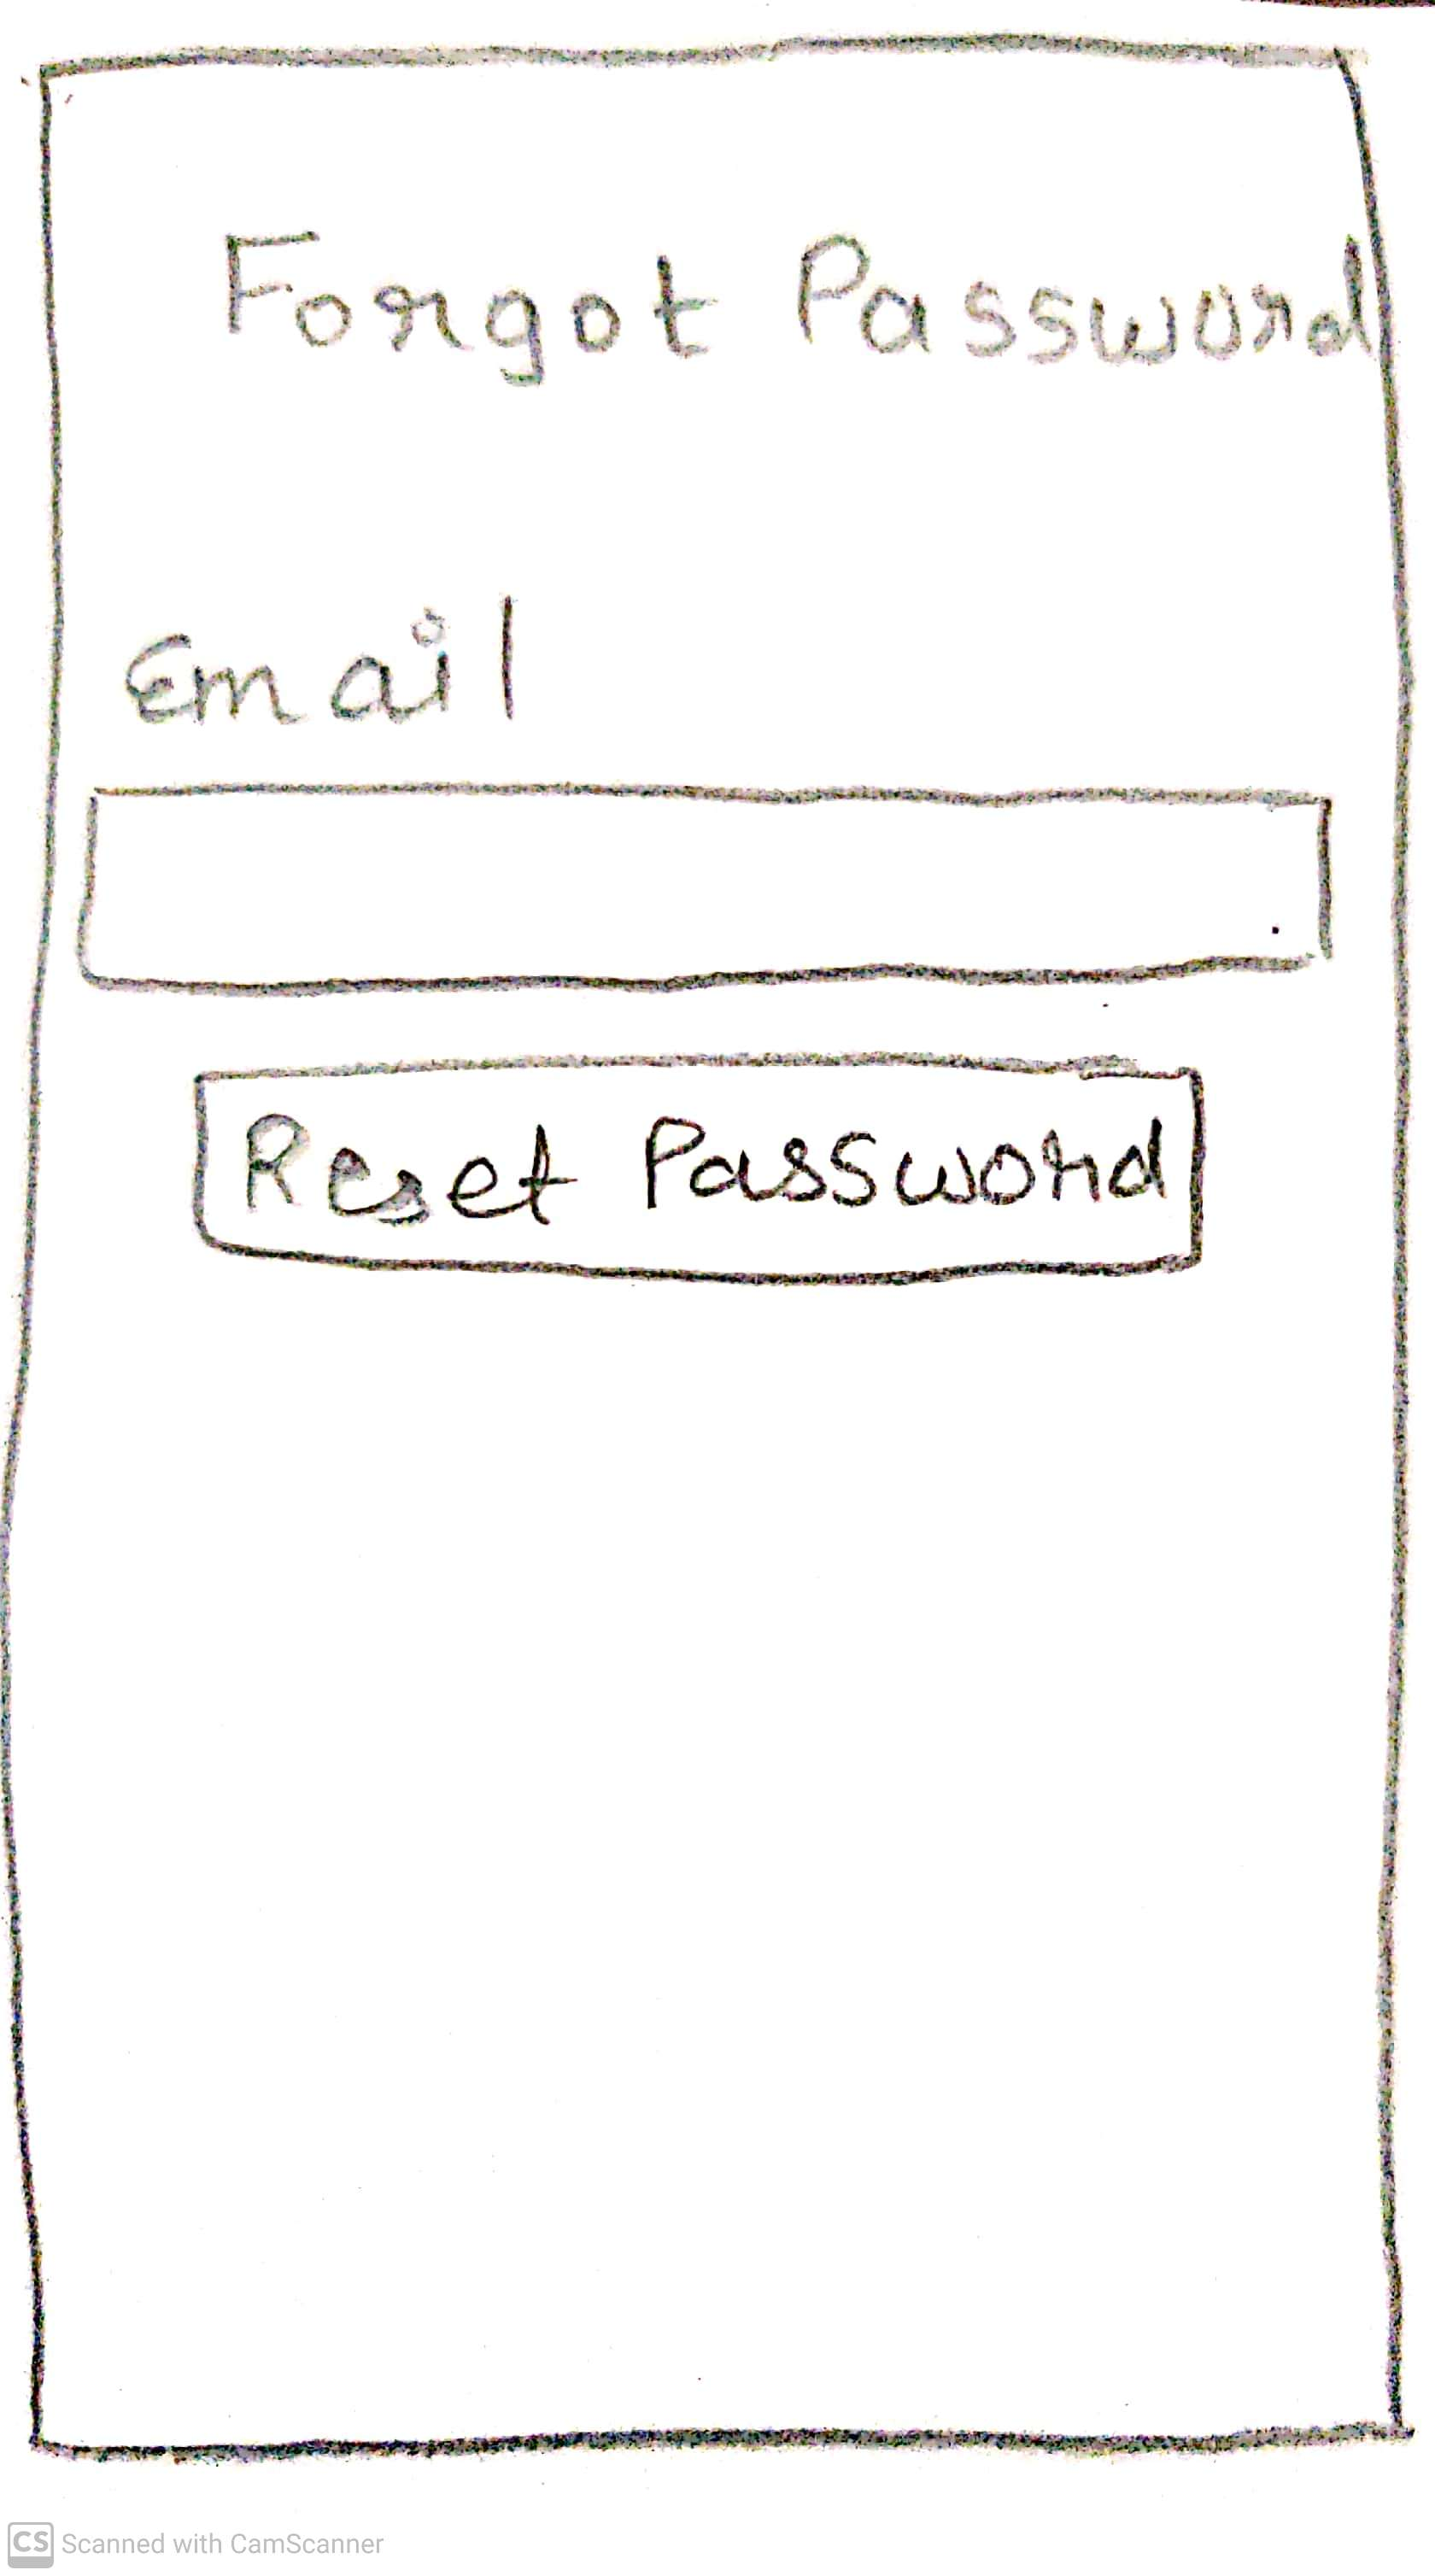 Forgot Password
Email
Reset Password
CS Scanned with CamScanner